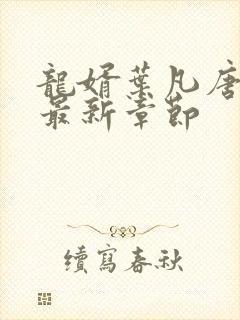 龍婿葉凡唐
最新章節
續寫春秋